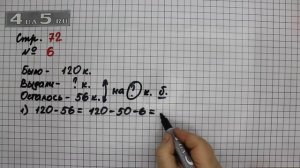 4 u@5.ru
Стр. 72
№ 6
Было - 120 к.
Выдали - ? к.
Осталось - 56 к.
на ? к. б.
1) 120 - 56 = 120 - 50 - 6 =